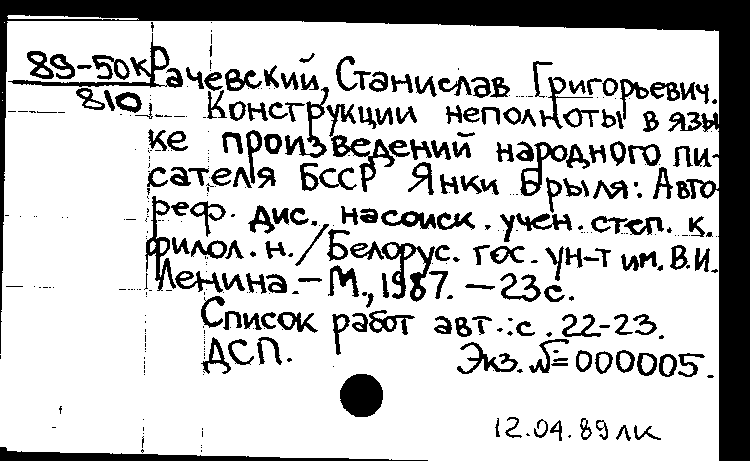 89-50к Рачевский, Станислав Григорьевич.
810 Конструкции неполноты в язы-
ке произведений народного пи-
сателя БССР Янки Брыля: Авто-
реф. дис. на соиск. учен. степ. к.
филол. н. / Белорус. гос. ун-т им. В.И.
Ленина. – М., 1987. – 23 с.
Список работ авт.: с. 22-23.
ДСП. Экз. № 000005.
12.04.89 лк